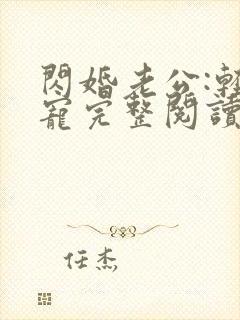 閃婚老公:輕
寵完整閱讀
任杰